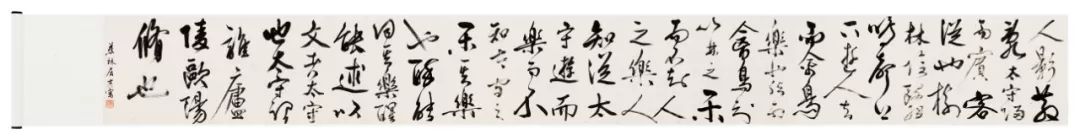 人影散
亂太守歸
而賓客
從也樹
林陰翳
鳴聲上
下遊人去
而禽鳥
樂也然而
禽鳥知
山林之樂
而不知人
之樂人
知從太
守遊而
樂而不
知太守之
樂其樂
也醉能
同其樂醒
能述以
文者太守
也太守謂
誰廬
陵歐陽
脩也
林居士